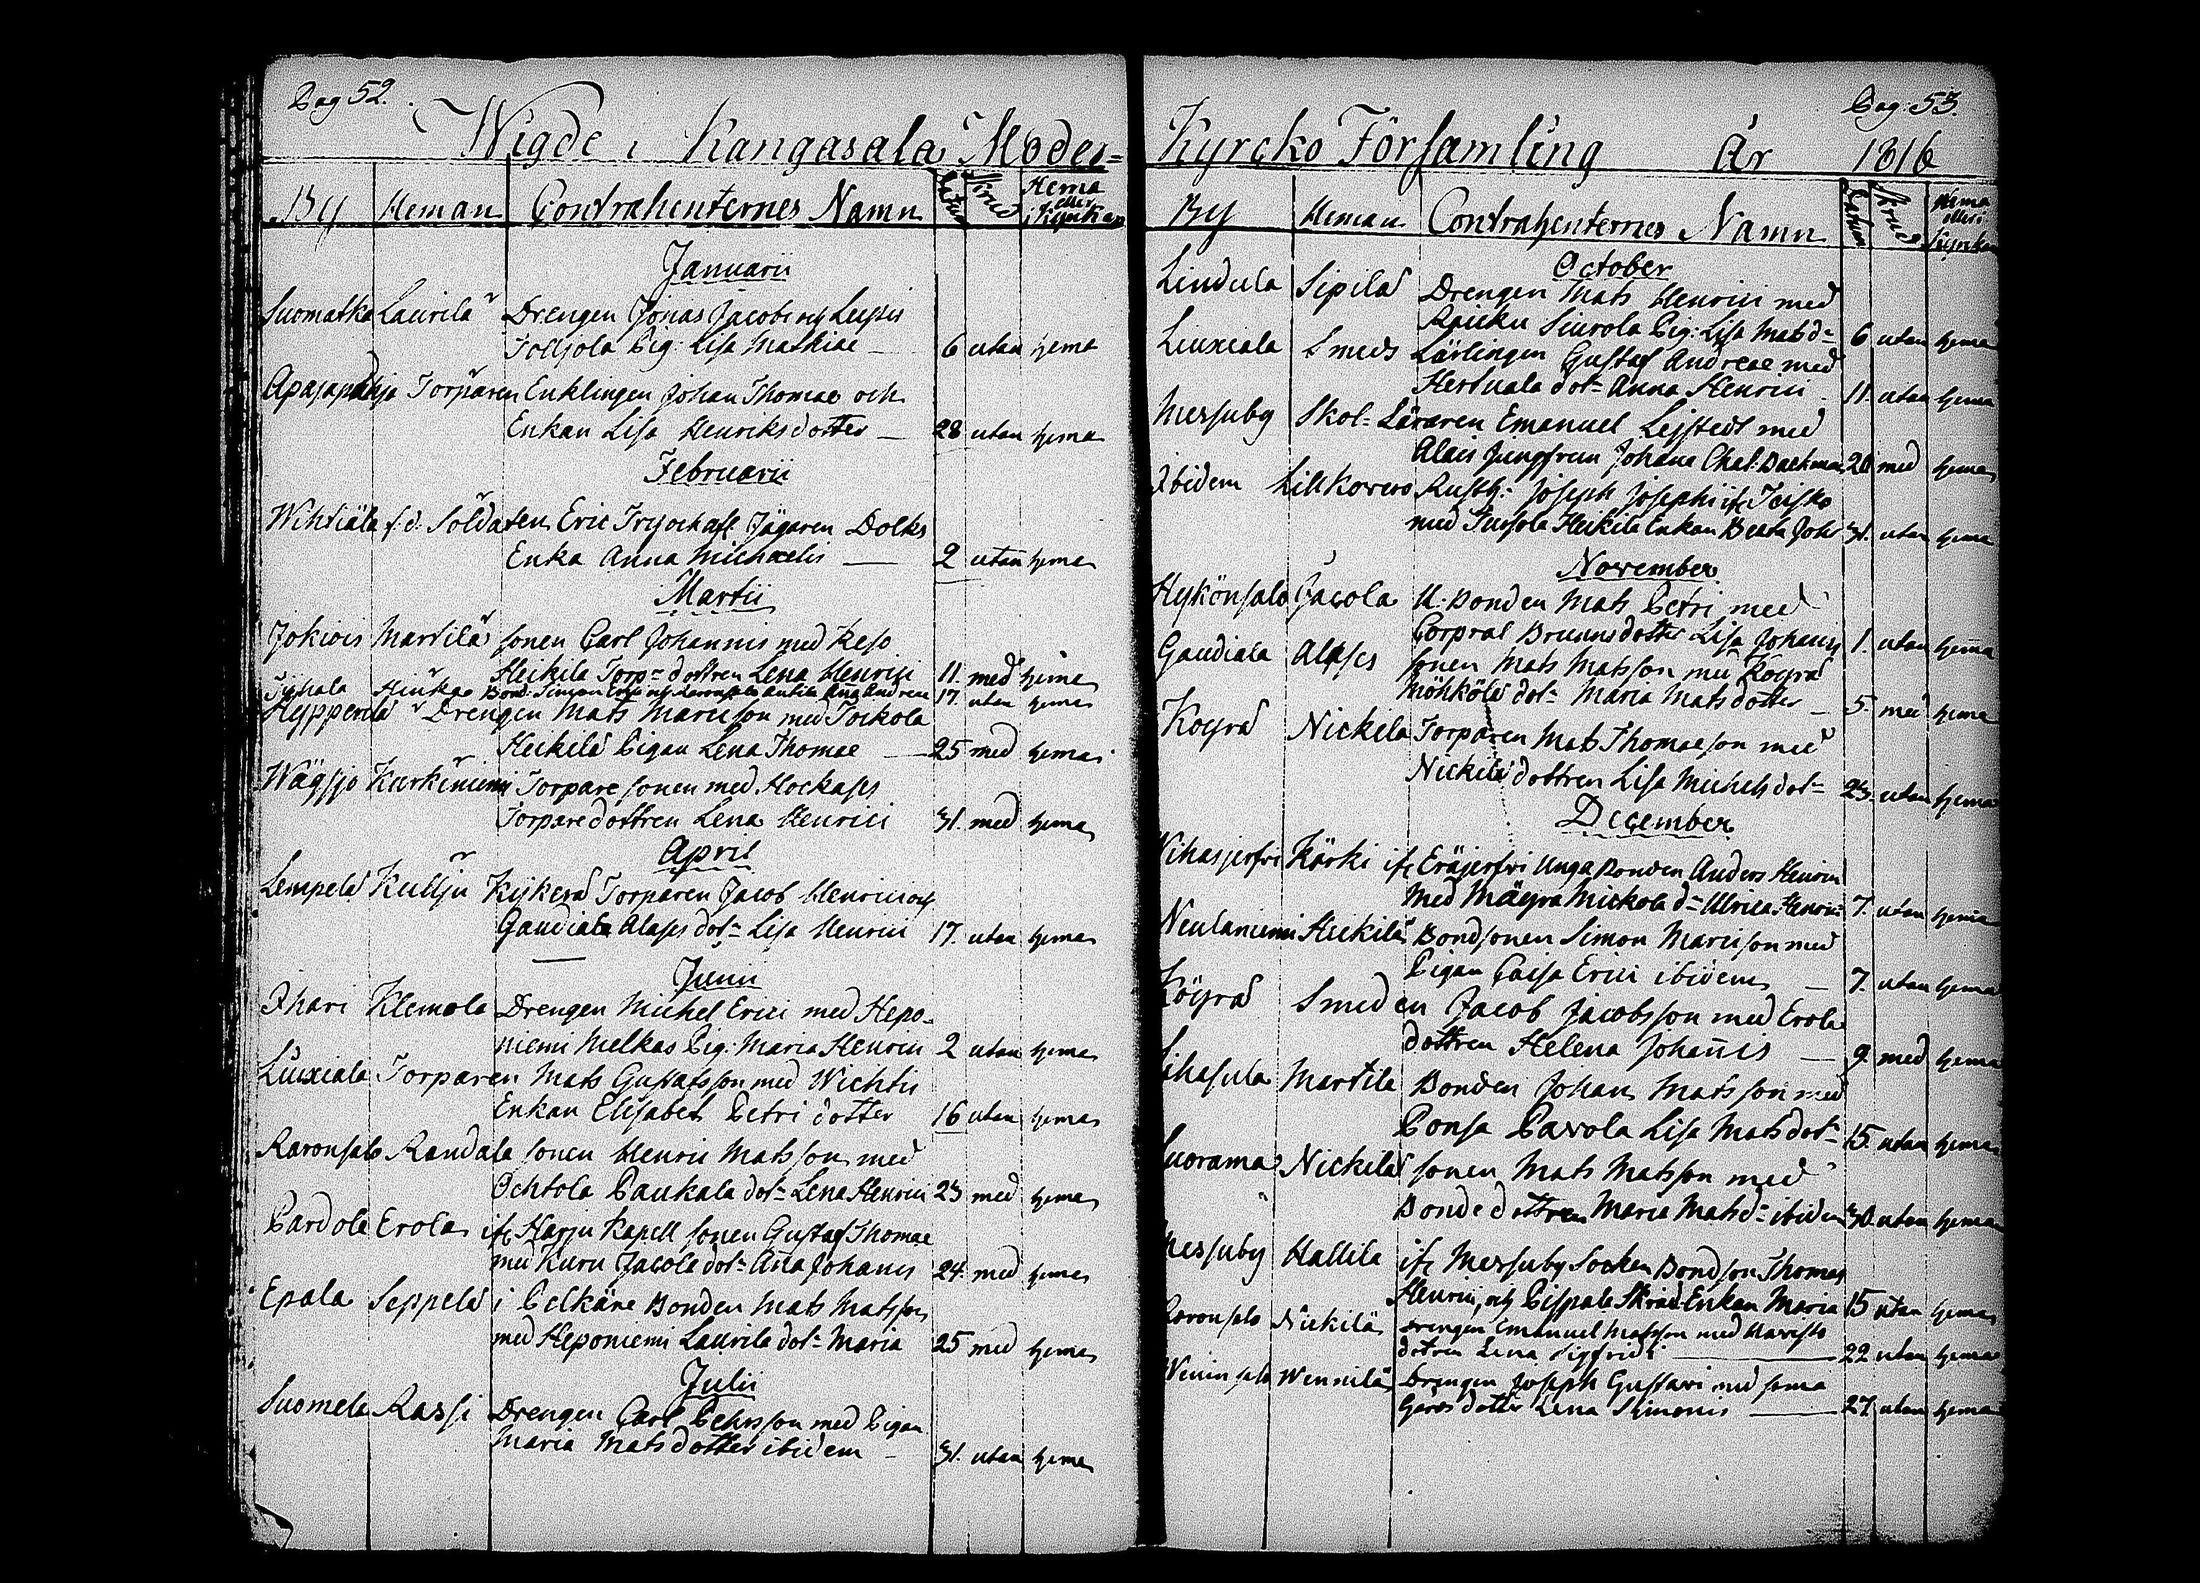 Pag 52.
Wigde i Kangasala Moder=
By Heman Contrahenternes Namn Datum Skrud Hema eller i Kyrkan
Januarii
Suomatka Laurila Drengen Jonas Jacobi och
Pig: Lisa Mathiae — 6 utan hema
Torparen Enklingen Johan Thomae och
Enkan Lisa Henriksdotter — 28 utan hema
Februarii
Wihtiälä f: d: Soldaten Eric Jägaren Dolks
Enka Anna Michaelis — 2 utan hema
Martii
Jokiois Martila sonen Carl Johannis med
Heikilä Torp= dottren Lena Henrici 11. med hema
17. utan hema
Drengen Mats Marcisson med
Heikilä Pigan Lena Thomae — 25 med hema
Wägsjo Kurkiniemi Torpare sonen med
Torparedottren Lena Henrici 31. med hema
April
Torparen Jacob Henrici och
Gaudiala dot= Lisa Henrici 17. utan hema
Junii
Ihari Klemola Drengen Michel Erici med Hepo=
niemi Melkas Pig: Maria Henrici 2 utan hema
Liuxiala Torparen Mats Gustafsson med Wichtis
Enkan Elisabet Petri dotter 16 utan hema
Raronsalo Randala sonen Henric Matsson med
Ochtola Paukala dot= Lena Henrici 23 med hema
Erola if: Harju Kapell sonen Gustaf Thomae
med Kuru Jacola dot= Anna Johannis 24. med hema
Epala Seppelä i Pelkäne Bonden Mats Matsson
med Heponiemi Laurila dot= Maria 25 med hema
Julii
Suomela Rassi Drengen Carl Pehrsson med Pigan
Maria Matsdotter ibidem — 31. utan hema
Pag: 53.
Kyrcko Församling År 1816
By Heman Contrahenternes Namn Datum Skrud Hema eller i Kyrkan
October
Sipilä Drengen Mats Henrici med
Raicku Siurola Pig: Lisa Matsd= 6 utan hema
Liuxiala Smeds Lärlingen Gustaf Andreae med
Hertuala dot= Anna Henrici 11. utan hema
Messuby Skol=Läraren Emanuel med
Jungfrun Johana 20 med hema
Ibidem Joseph Josephi
med Heikilä Enkan Beata Joh: 31. utan hema
November
Jacola U: Bonden Mats Petri med
Corpral Brunns dotter Lisa Johans 1. utan hema
Gaudiala sonen Mats Matsson med Koyrä
dot= Maria Matsdotter — 5. med hema
Koyrä Nickilä Torparen Mats Thomaeson med
Nickilä dottren Lisa Michelsdot= 23. utan hema
December
Kärki if: Eräjerfvi Unga Bonden Anders Henrici
med Mäyrä Mickola d= Ulrica Henrici 7. utan hema
Neulaniemi Heikilä Bondsonen Simon Marcisson med
Pigan Caisa Erici ibidem — 7. utan hema
Köyrä Smeden Jacob Jacobsson med Erola
dottren Helena Johannis — 9 med hema
Lihasula Martila Bonden Johan Matsson med
Ponsa Pavola Lisa Matsdot= 15. utan hema
Suorama Nickilä sonen Mats Matsson med
Bondedottren Maria Matsd= ibidem 30. utan hema
Messuby Hallila if: Messuby Socken Bondson Thomas
Henrici och Enkan Maria 15 utan hema
Raronsalo Nickilä Drengen Emanuel Matsson med
dotren Lena Sigfridi — 22 utan hema
Wennilä Drengen Joseph Gustavi med sama
Gårds dotter Lena Simonis — 27 utan hema